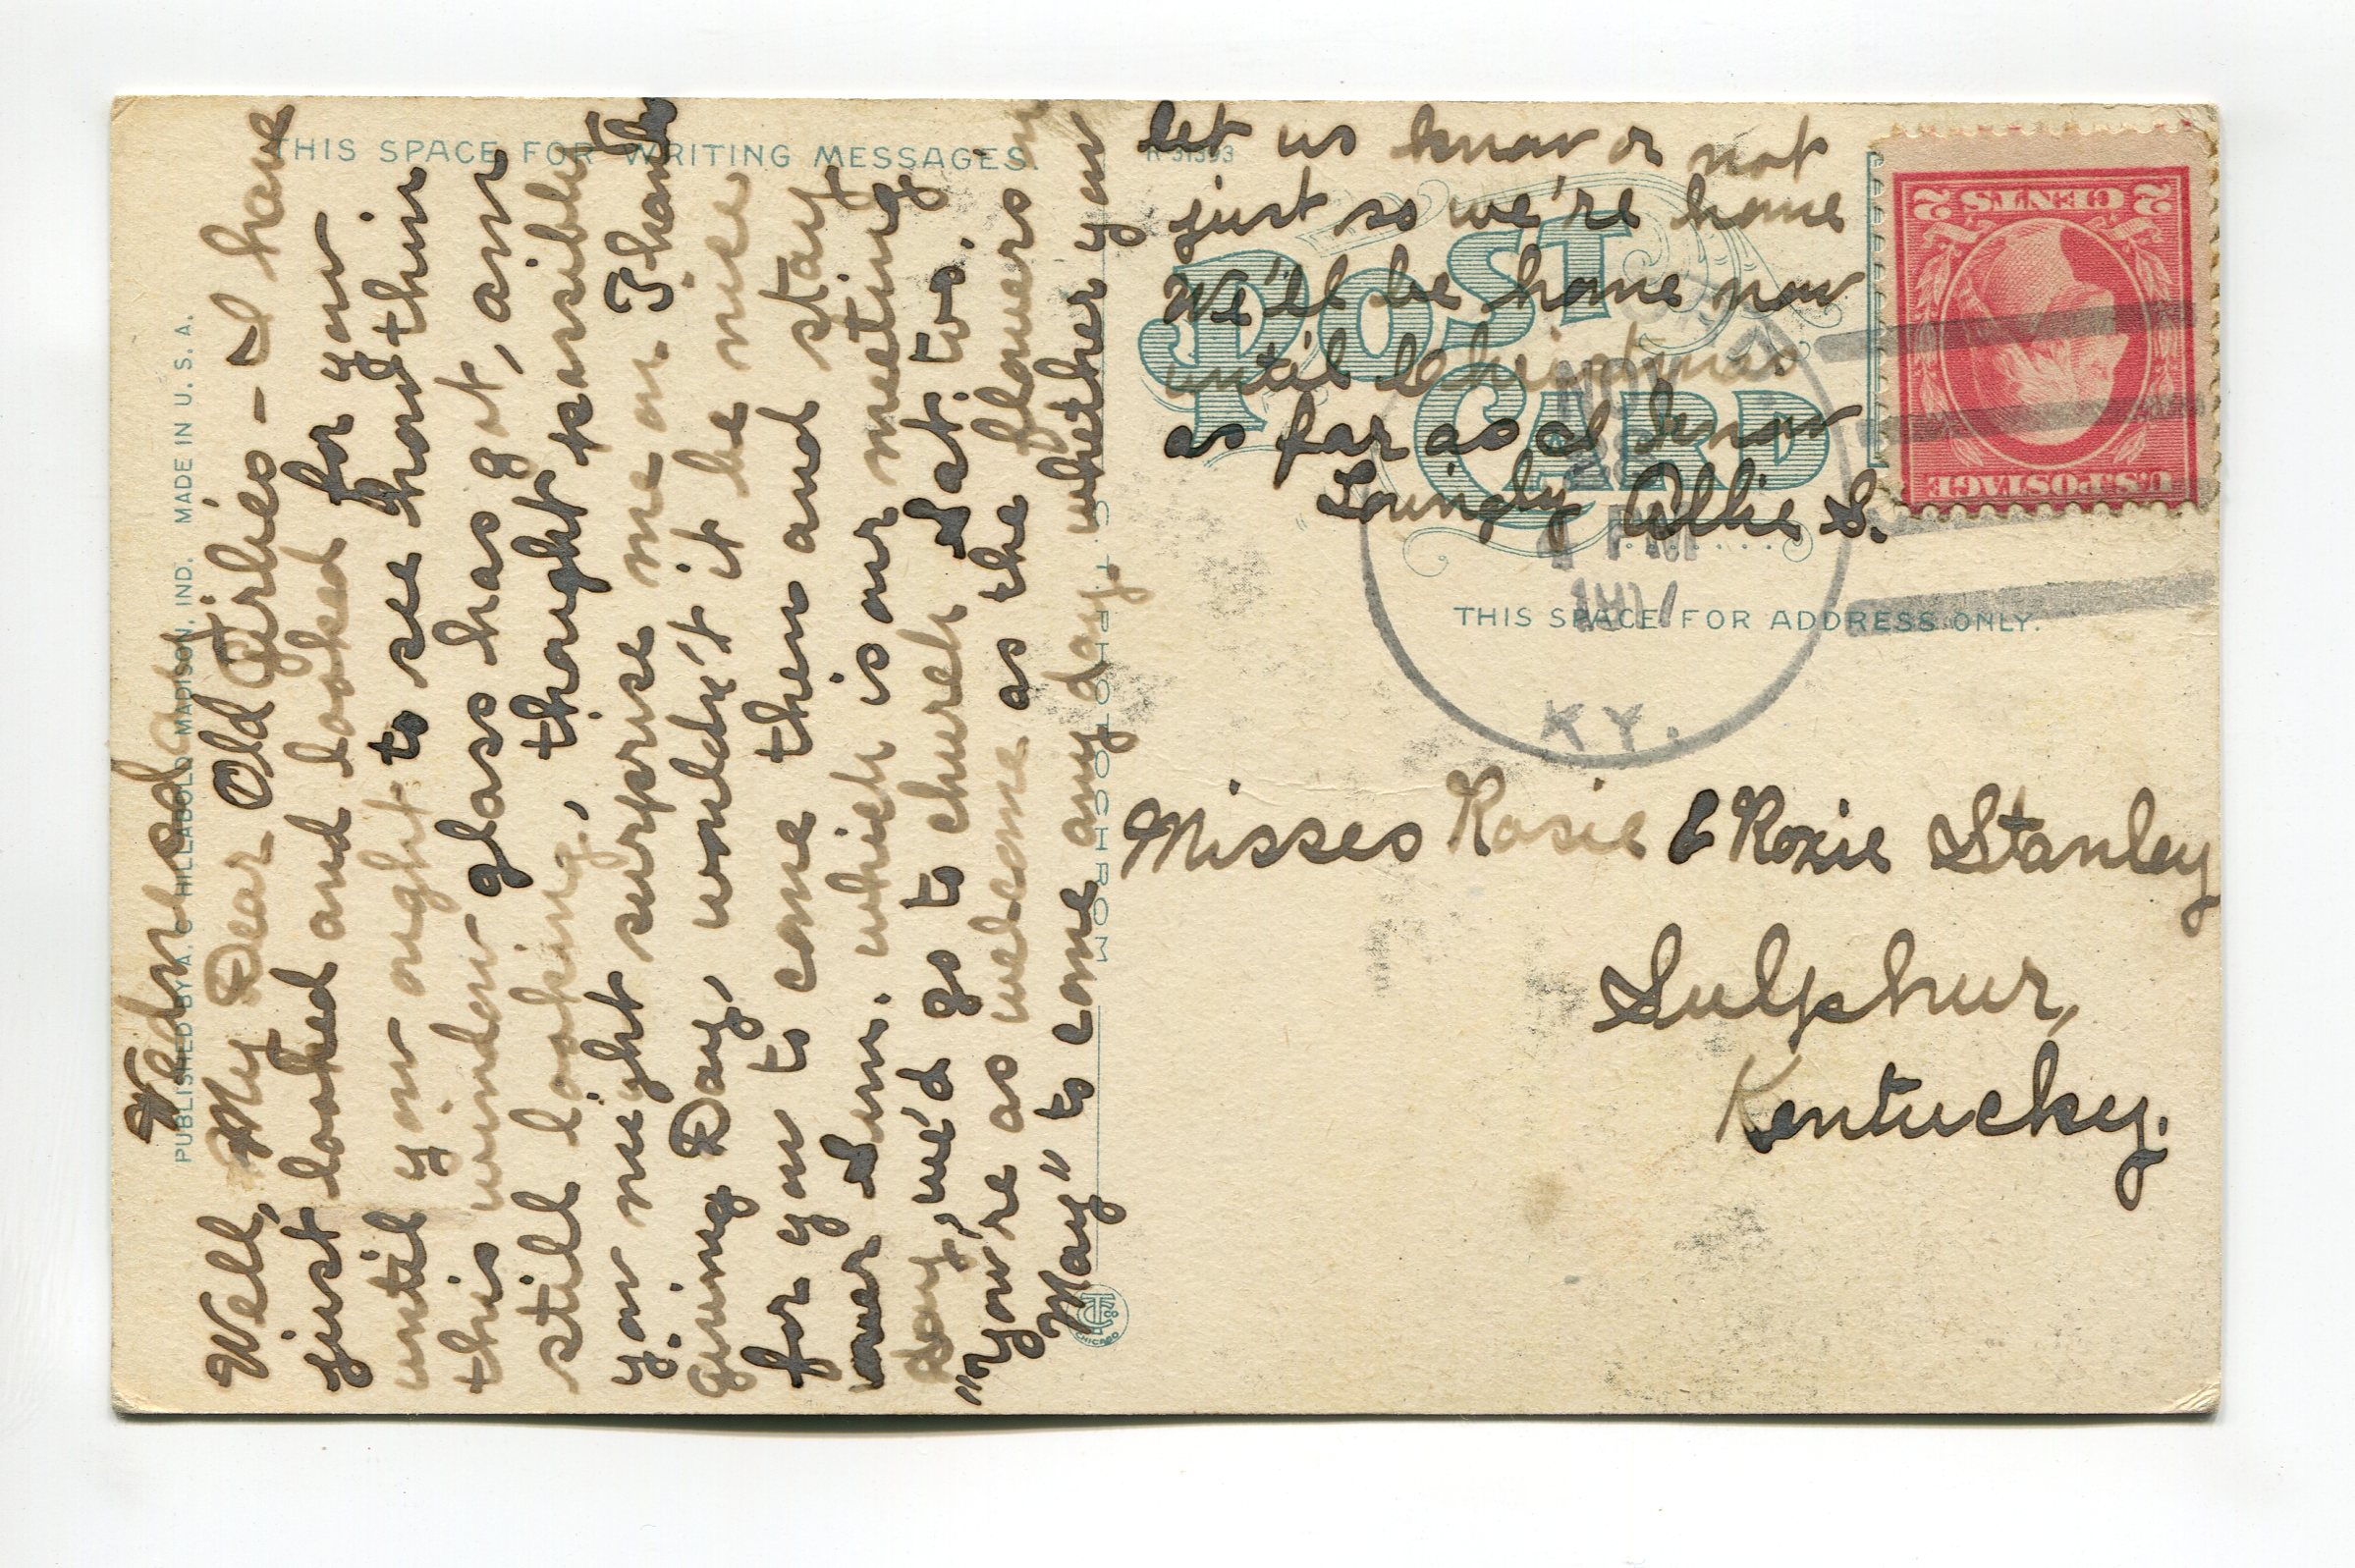 Wednesd
Well, My Dear Old Girlies - I have
just looked and looked for you
until you ought to see how thin
this window glass has got, am
still looking, thought possibly
you might surprise me on Thanks
giving Day, wouldn't it be nice
for you to come then and stay
over Sun. which is our meeting
Day, we'd go to church Sat. too.
"You're as welcome as the flowers in
May" to come any day whether you
let us know or not
just so we're home
We'll be home now
until Christmas
as far as I know
Lovingly Allie S.
Misses Rosie & Roxie Stanley
Sulphur,
Kentucky.
THIS SPACE FOR WRITING MESSAGES.
R-31593
POST
CARD
THIS SPACE FOR ADDRESS ONLY.
PUBLISHED BY A. C HILLABOLD MADISON, IND. MADE IN U. S. A.
CHICAGO
NOV
28
4 PM
KY.
2 CENTS 2
U.S. POSTAGE